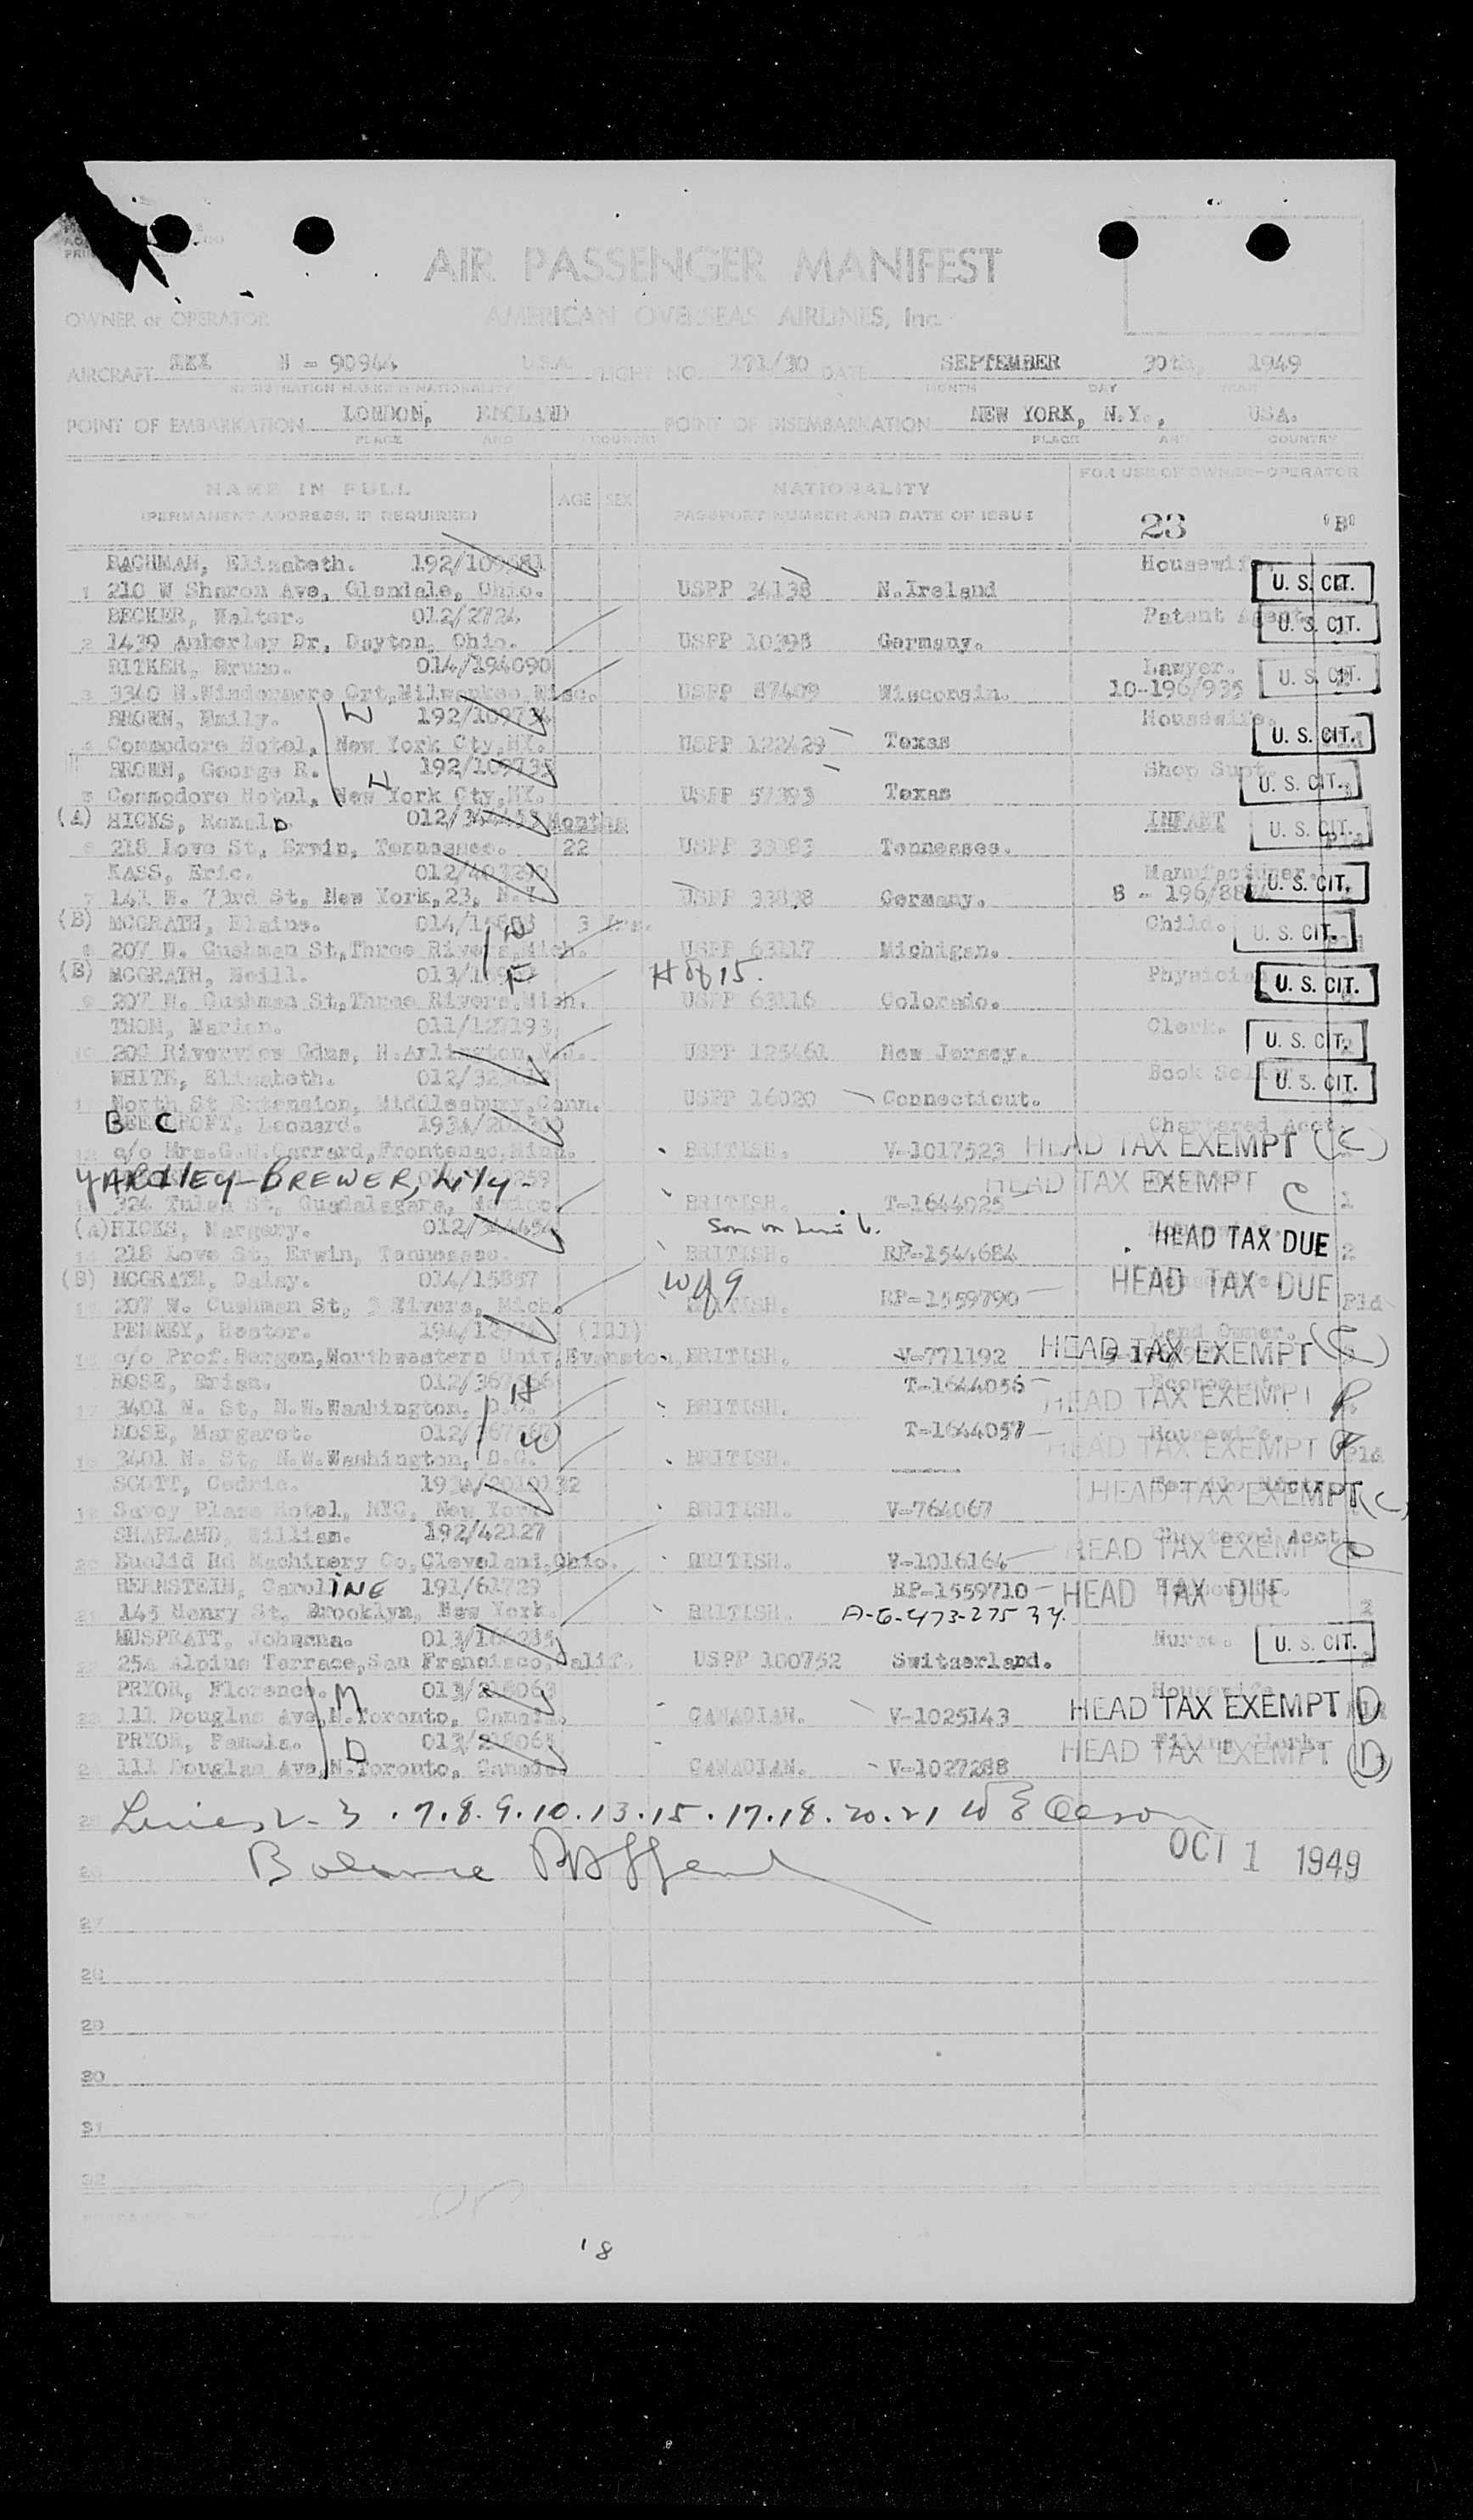 AIR PASSENGER MANIFEST
OWNER or OPERATOR AMERICAN OVERSEAS AIRLINES, Inc.
AIRCRAFT N - 90944 U.S.A. FLIGHT NO. 171/30 DATE SEPTEMBER 30th, 1949
REGISTRATION MARKS NATIONALITY MONTH DAY YEAR
POINT OF EMBARKATION LONDON, ENGLAND POINT OF DISEMBARKATION NEW YORK, N.Y., USA.
PLACE AND COUNTRY PLACE AND COUNTRY
NAME IN FULL AGE SEX NATIONALITY FOR USE OF OWNER-OPERATOR
(PERMANENT ADDRESS, IF REQUIRED) PASSPORT NUMBER AND DATE OF ISSUE
23 "B"
BACHMAN, Elizabeth. Housewife.
1 210 W Sharon Ave, Glendale, Ohio. USPP 34138 N.Ireland U. S. CIT.
BECKER, Walter. 012/2724 Patent Agent.
2 1439 Amberley Dr, Dayton, Ohio. USPP 10398 Germany. U. S. CIT.
BITKER, Bruno. 014/194090 Lawyer.
3 3340 N.Windermere Crt, Milwaukee, Wisc. USPP 57409 Wisconsin. 10-196/935 U. S. CIT.
BROWN, Emily. W 192/109734 Housewife.
4 Commodore Hotel, New York Cty, NY. USPP 122429 Texas U. S. CIT.
BROWN, George R. H 192/109735 Shop Supt.
5 Commodore Hotel, New York Cty, NY. USPP 57393 Texas U. S. CIT.
(A) HICKS, Ronald. Months INFANT
6 218 Love St, Erwin, Tennessee. 22 USPP 33083 Tennessee. U. S. CIT.
KASS, Eric. Manufacturer.
7 141 W. 73rd St, New York, 23, N.Y USPP 33838 Germany. U. S. CIT.
(B) MCGRATH, Elaine. 3 Yrs. Child.
8 207 W. Cushman St, Three Rivers, Mich. USPP 63117 Michigan. U. S. CIT.
(B) MCGRATH, Neill. F H of 15. Physician
9 207 W. Cushman St, Three Rivers, Mich. USPP 63116 Colorado. U. S. CIT.
THOM, Marion. 011/127193 Clerk.
10 200 Riverview Gdns, N.Arlington, N.J. USPP 125461 New Jersey. U. S. CIT.
WHITE, Elizabeth. Book Seller.
11 North St Extension, Middlesbury, Conn. USPP 16020 Connecticut. U. S. CIT.
Leonard. Chartered Acct.
12 c/o Mrs.G.W.Garrard, Frontenac, Minn. BRITISH. V-1017523 HEAD TAX EXEMPT (C)
YARDLEY-BREWER, Lily.
13 324 Tulsa St, Guadalagara, Mexico. BRITISH. T-1644025 HEAD TAX EXEMPT C 1
(A) HICKS, Margery. Son on Line 6.
14 218 Love St, Erwin, Tennessee. BRITISH. RP-1544684 HEAD TAX DUE 2
(B) MCGRATH, Daisy. 014/15887 W of 9
15 207 W. Cushman St, 3 Rivers, Mich. BRITISH. RP-1559790 HEAD TAX DUE Pld
PENNEY, Hester. (III) Land Owner.
16 c/o Prof.Bergen, Northwestern Univ, Evanston, BRITISH. V-771192 HEAD TAX EXEMPT (C)
ROSE, Brian. H T-1644056 Economist.
17 3401 N. St, N.W. Washington, D.C. BRITISH. HEAD TAX EXEMPT
ROSE, Margaret. W T-1644057 Housewife.
18 3401 N. St, N.W. Washington, D.C. BRITISH. HEAD TAX EXEMPT Pld
SCOTT, Cedric.
19 Savoy Plaza Hotel, NYC, New York BRITISH. V-764067 HEAD TAX EXEMPT (C)
SHAPLAND, William. 192/42127 Chartered Acct.
20 Euclid Rd Machinery Co, Cleveland, Ohio. BRITISH. V-1016164 HEAD TAX EXEMPT C
BERNSTEIN, Caroline 191/61729 RP-1559710 HEAD TAX DUE
21 145 Henry St, Brooklyn, New York. BRITISH. A-6-473-275 2
MUSPRATT, Johanna. Nurse.
22 25A Alpine Terrace, San Francisco, Calif. USPP 100752 Switzerland. U. S. CIT.
PRYOR, Florence. M Housewife
23 111 Douglas Ave, N.Toronto, Canada. CANADIAN. V-1025143 HEAD TAX EXEMPT D
PRYOR, Pamela. D Filing Clerk.
24 111 Douglas Ave, N.Toronto, Canada. CANADIAN. V-1027288 HEAD TAX EXEMPT (D)
25 Lines 2-3.7.8.9.10.13.15.17.18.20.21
26 Balance OCT 1 1949
27
28
29
30
31
32
18